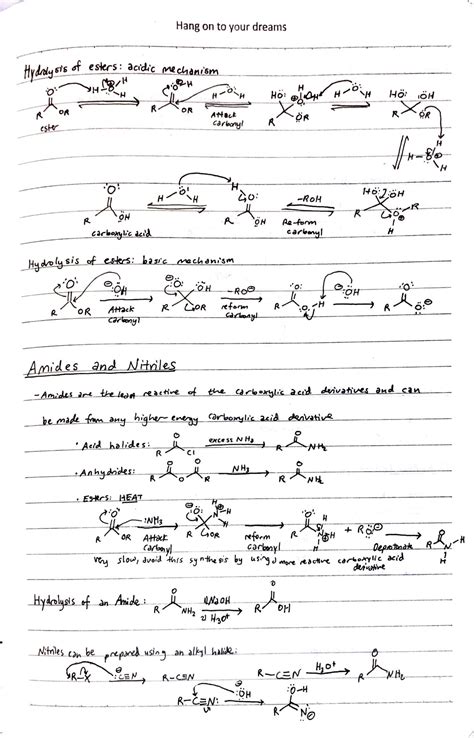 Hang on to your dreams
Hydrolysis of esters: acidic mechanism
ester
Attack carbonyl
-ROH
Re-form carbonyl
carboxylic acid
Hydrolysis of esters: basic mechanism
Attack carbonyl
-RO⊖
reform carbonyl
Amides and Nitriles
-Amides are the least reactive of the carboxylic acid derivatives and can
be made from any higher-energy carboxylic acid derivative
• Acid halides: R Cl excess NH3 R NH2
• Anhydrides: R O R NH3 R NH2
• Esters: HEAT
R OR :NH3 Attack carbonyl reform carbonyl + RO⊖ Deprotonate
very slow, avoid this synthesis by using a more reactive carboxylic acid derivative
Hydrolysis of an Amide: R NH2 1) NaOH 2) H3O+ R OH
Nitriles can be prepared using an alkyl halide:
R-X :C≡N R-C≡N R-C≡N H3O+ R NH2
R-C≡N: :ÖH